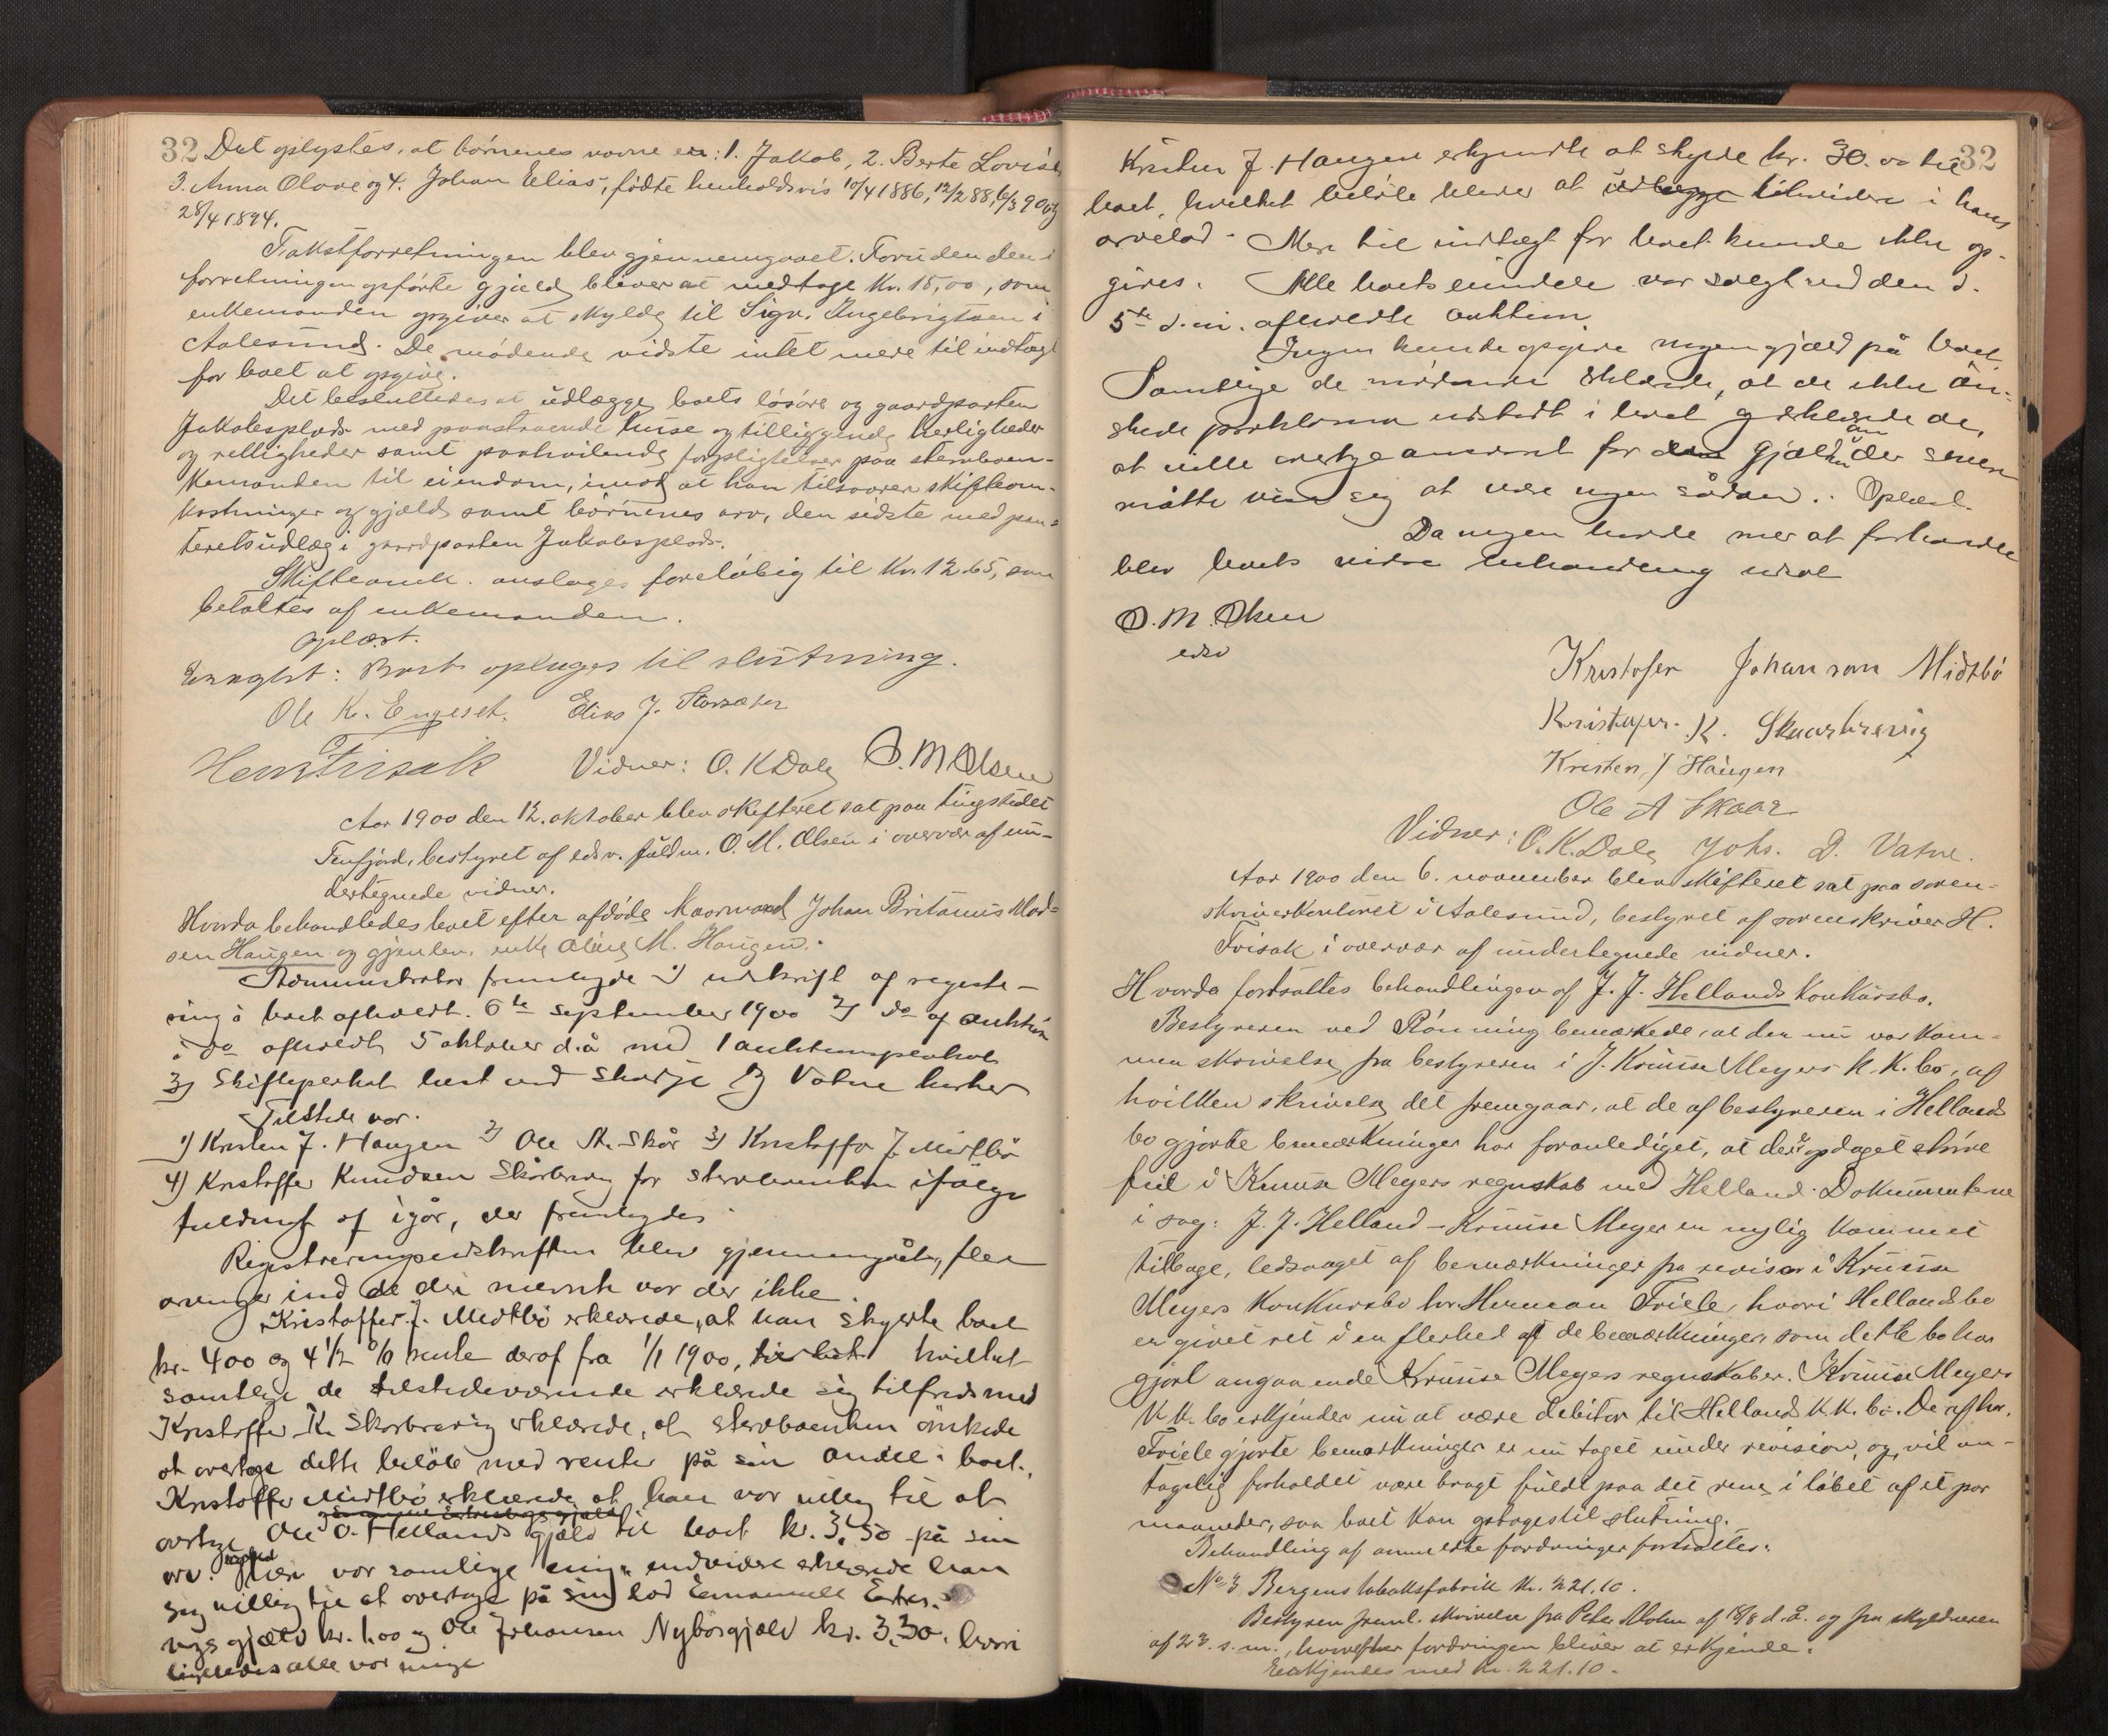 32 Det oplystes, at børnenes navne er: 1. Jakob, 2. Berte Lovise
3. Anna Olave og 4. Johan Elias, fødte henholdsvis 10/4 1886, 12/2 88, 6/3 90 og
28/4 1894.
Takstforretningen blev gjennemgaaet. Foruden den i
forretningen opførte gjæld bliver at medtage Kr. 15,00, som
enkemanden opgiver at skylde til Sigv. Ingebrigtsen i
Aalesund. De mødende vidste intet mere til indtægt
for boet at opgive.
Det besluttedes at udlægge boets løsøre og gaardparten
Jakobsplads med paastaaende huse og tilliggende herligheder
og rettigheder samt paahvilende forpligtelser paa sterbøen-
kemanden til eiendom, imod at han tilsvarer skifteom-
kostninger og gjæld samt børnenes arv, den sidste med pan-
teretsudlæg i gaardparten Jakobsplads.
Skifteomk. ansloges foreløbig til Kr. 12.65, som
betaltes af enkemanden.
Oplæst.
Eragtet: Boet optages til slutning.
Ole K. Engeset. Elias J. Storsæter
Hem Frisak Vidner: O. K Dale O. M Olsen
Aar 1900 den 12. oktober blev skifteret sat paa tingstedet
Tenfjord, bestyret af edsv. fuldm. O. M. Olsen i overvær af un-
dertegnede vidner.
Hvorda behandledes boet efter afdøde Kaarmand Johan Britanus Mad-
sen Haugen og gjenlev. enke Oline M. Haugen.
Administrator fremlagde 1) udskrift af registe-
ring i boet afholdt 6te september 1900 2) do af auktion
i do afholdt 5 oktober d.å med 1 auktionsplakat
3) Skifteplakat læst ved Skodje og Vatne kirker
Tilstede var.
1) Kristen J. Haugen 2) Ole A. Skår 3) Kristoffer J. Midtbø
4) Kristoffer Knudsen Skårbrevig for sterboenken ifølge
fuldmagt af igår, der fremlagdes
Registreringsudskriften blev gjennemgået, flere
arvinger end de der nævnte var der ikke.
Kristoffer J. Midtbø erklærede, at han skyldte boet
kr. 400 og 4 1/2 % rente deraf fra 1/1 1900, hvilket
samtlige de tilstedeværende erklærede sig tilfreds med
Kristoffer K. Skorbrevig erklærede, at sterboenken ønskede
at overtage dette beløb med renter på sin andel i boet.
Kristoffer Midtbø erklærede at han var villig til at
overtage Ole O. Hellands gjæld til boet kr. 3.50 på sin
arv. var samtlige enig. endvidere erklærede han
sig villig til at overtage på sin lod Emanuell
gjæld kr. 1.00 og Ole Johansen Nybøsgjæld kr. 3.30. hvori
ligeledes alle var enige
32
Kristen J. Haugen erkjendte at skylde kr. 30.00 til
boet, hvilket beløb bliver at udlægge i hans
arvelod. Mere til indtægt for boet kunde ikke op-
gives. Alle boets eiendele var solgt ved den d.
5te d.m. afholdte auktion.
Ingen kunde opgive nogen gjæld på boet
Samtlige de mødende erklærede, at de ikke øn-
skede proklama udstedt i boet og erklærede de,
at ville overtage ansvaret for den gjæld der senere
måtte vise sig at være nogen sådan. Oplæst.
Da ingen havde mer at forhandle
blev boets videre behandling udsat
O. M. Olsen
edsv
Kristofer Johanson Midtbø
Kristofer. K. Skaarbrevig
Kristen J Haugen
Ole A Skaar
Vidner: O. K. Dale Johs. D. Vatne.
Aar 1900 den 6. november blev skifteret sat paa soren-
skriverkontoret i Aalesund, bestyret af sorenskriver H.
Frisak i overvær af undertegnede vidner.
Hvorda fortsattes behandlingen af J. J. Hellands konkursbo.
Bestyreren ved Rønning bemærkede, at der nu var kom-
men skrivelse fra bestyreren i J. Kruuse Meyers K. K. bo, af
hvilken skrivelse det fremgaar, at de af bestyreren i Hellands
bo gjorte bemærkninger har foranlediget, at der er opdaget større
feil i Kruuse Meyers regnskab med Helland. Dokumenterne
i sag: J. J. Helland – Kruuse Meyer er nylig kommet
tilbage, ledsaget af bemærkninger fra revisor i Kruuse
Meyers konkursbo hr. Herman Friele, hvori Hellands bo
er givet ret i en flerhed af de bemærkninger som dette bo har
gjort angaaende Kruuse Meyers regnskaber. Kruuse Meyers
K.K. bo erkjender nu at være debitor til Hellands K.K. bo. De af hr.
Friele gjorte bemærkninger er nu taget under revision, og vil an-
tagelig forholdet være bragt fuldt paa det rene i løbet af et par
maaneder, saa boet kan optages til slutning.
Behandling af anmeldte fordringer fortsattes.
No 3 Bergens tobaksfabrik kr. 221.10.
Bestyren freml. skrivelse fra Peter Mohn af 18/8 d.å. og fra skyldneren
af 23. s. m., hvorefter fordringen bliver at erkjende.
Erkjendes med Kr. 221.10.